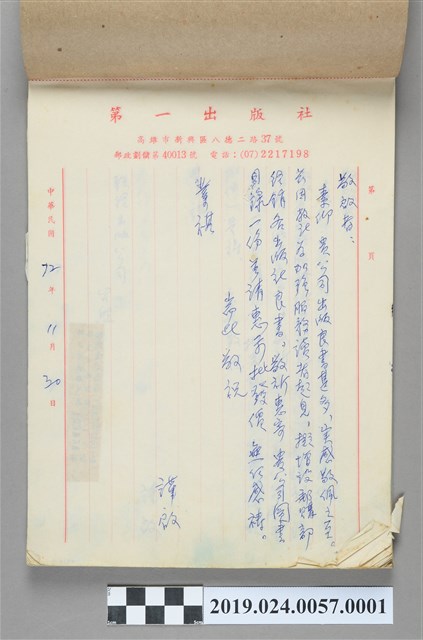 第一出版社
高雄市新興區八德二路37號
郵政劃儲第40013號 電話：(07)2217198
第 頁
敬啟者：
素仰 貴公司出版良書甚多，實感敬佩之至。
茲因敝社為加強服務讀者起見，擬增設郵購部
經銷各出版社良書，敬祈惠寄 貴公司圖書
目錄一份並請惠示批發價 無任感禱。
耑此 敬祝
業祺
謹啟
中華民國 72 年 11 月 30 日
2019.024.0057.0001